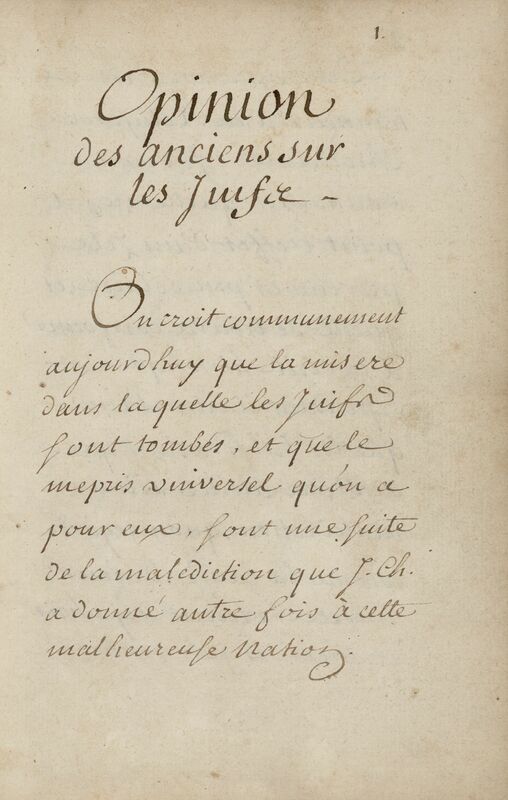 1.
Opinion
des anciens sur
les Juifs
On croit communement
aujourdhuy que la misere
dans la quelle les Juifs
sont tombés, et que le
mepris vniversel qu'on a
pour eux, sont une suite
de la malediction que J. Ch.
a donné autre fois à cette
malheureuse Nation.